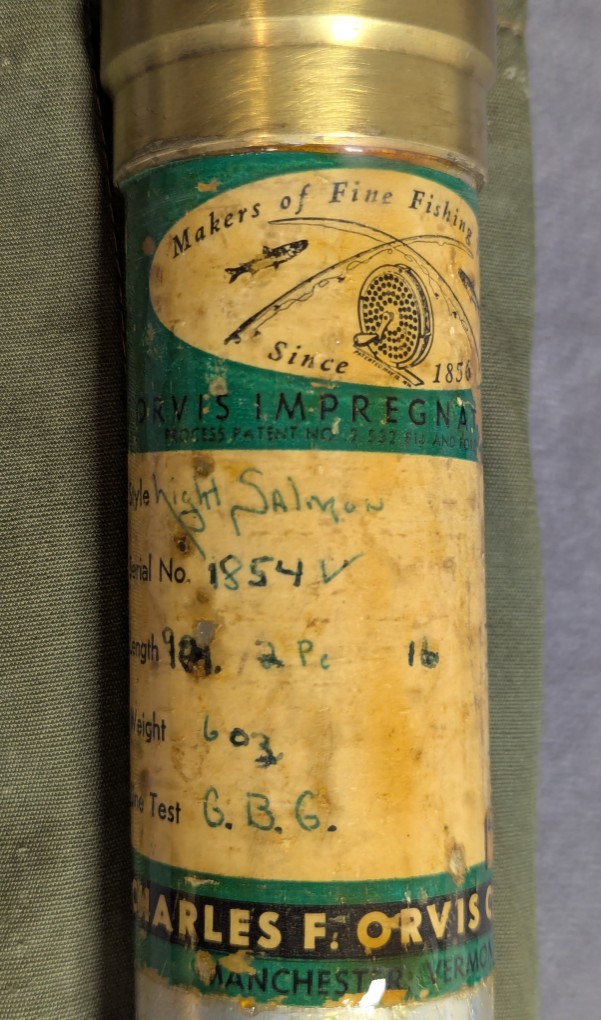 Makers of Fine Fishing
Since 1856
ORVIS IMPREGNAT
PROCESS PATENT NO. 2,532,814 AND
Style Light Salmon
Serial No. 1854 V
Length 2 Pc
Weight 6 oz
Line Test G.B.G.
CHARLES F. ORVIS C
MANCHESTER, VERMON